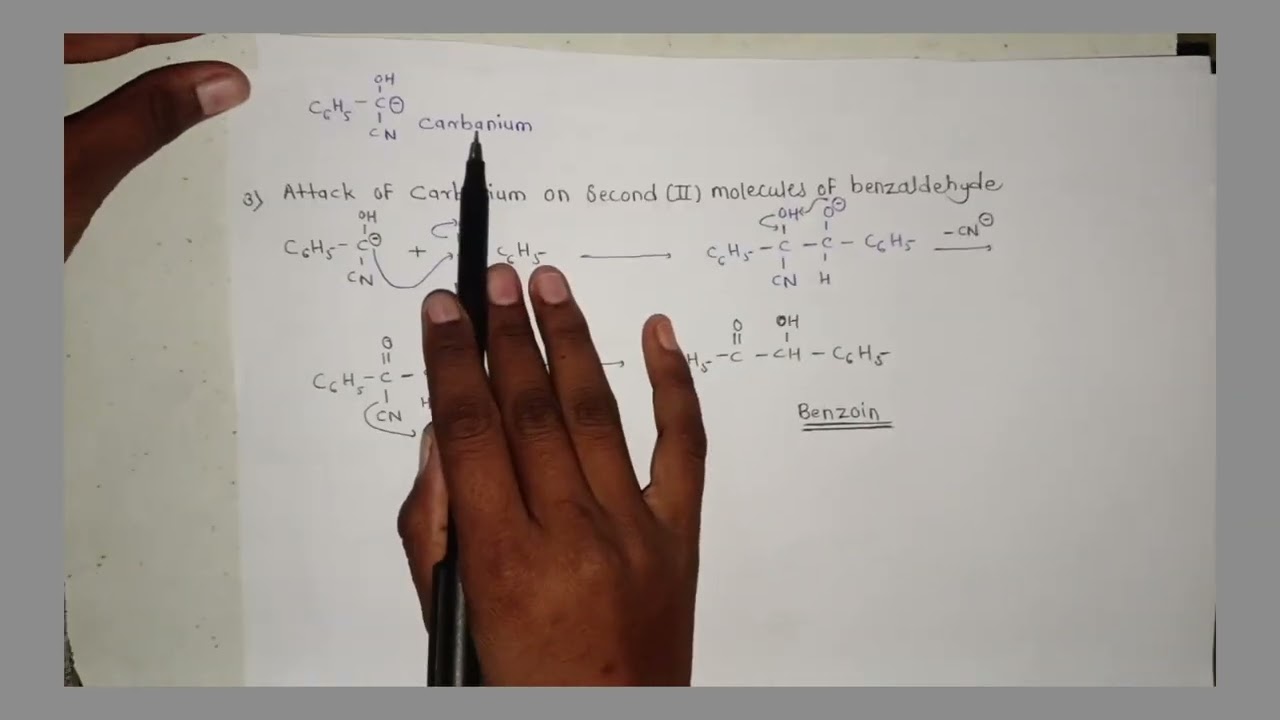 OH
C6H5 - C⊖
CN carbanium
3) Attack of carbanium on Second (II) molecules of benzaldehyde
OH
C6H5 - C⊖ + C6H5 ⟶
CN
OH O⊖
C6H5 - C - C - C6H5 -CN⊖ ⟶
CN H
O
C6H5 - C -
CN H
O OH
H5 - C - CH - C6H5
Benzoin